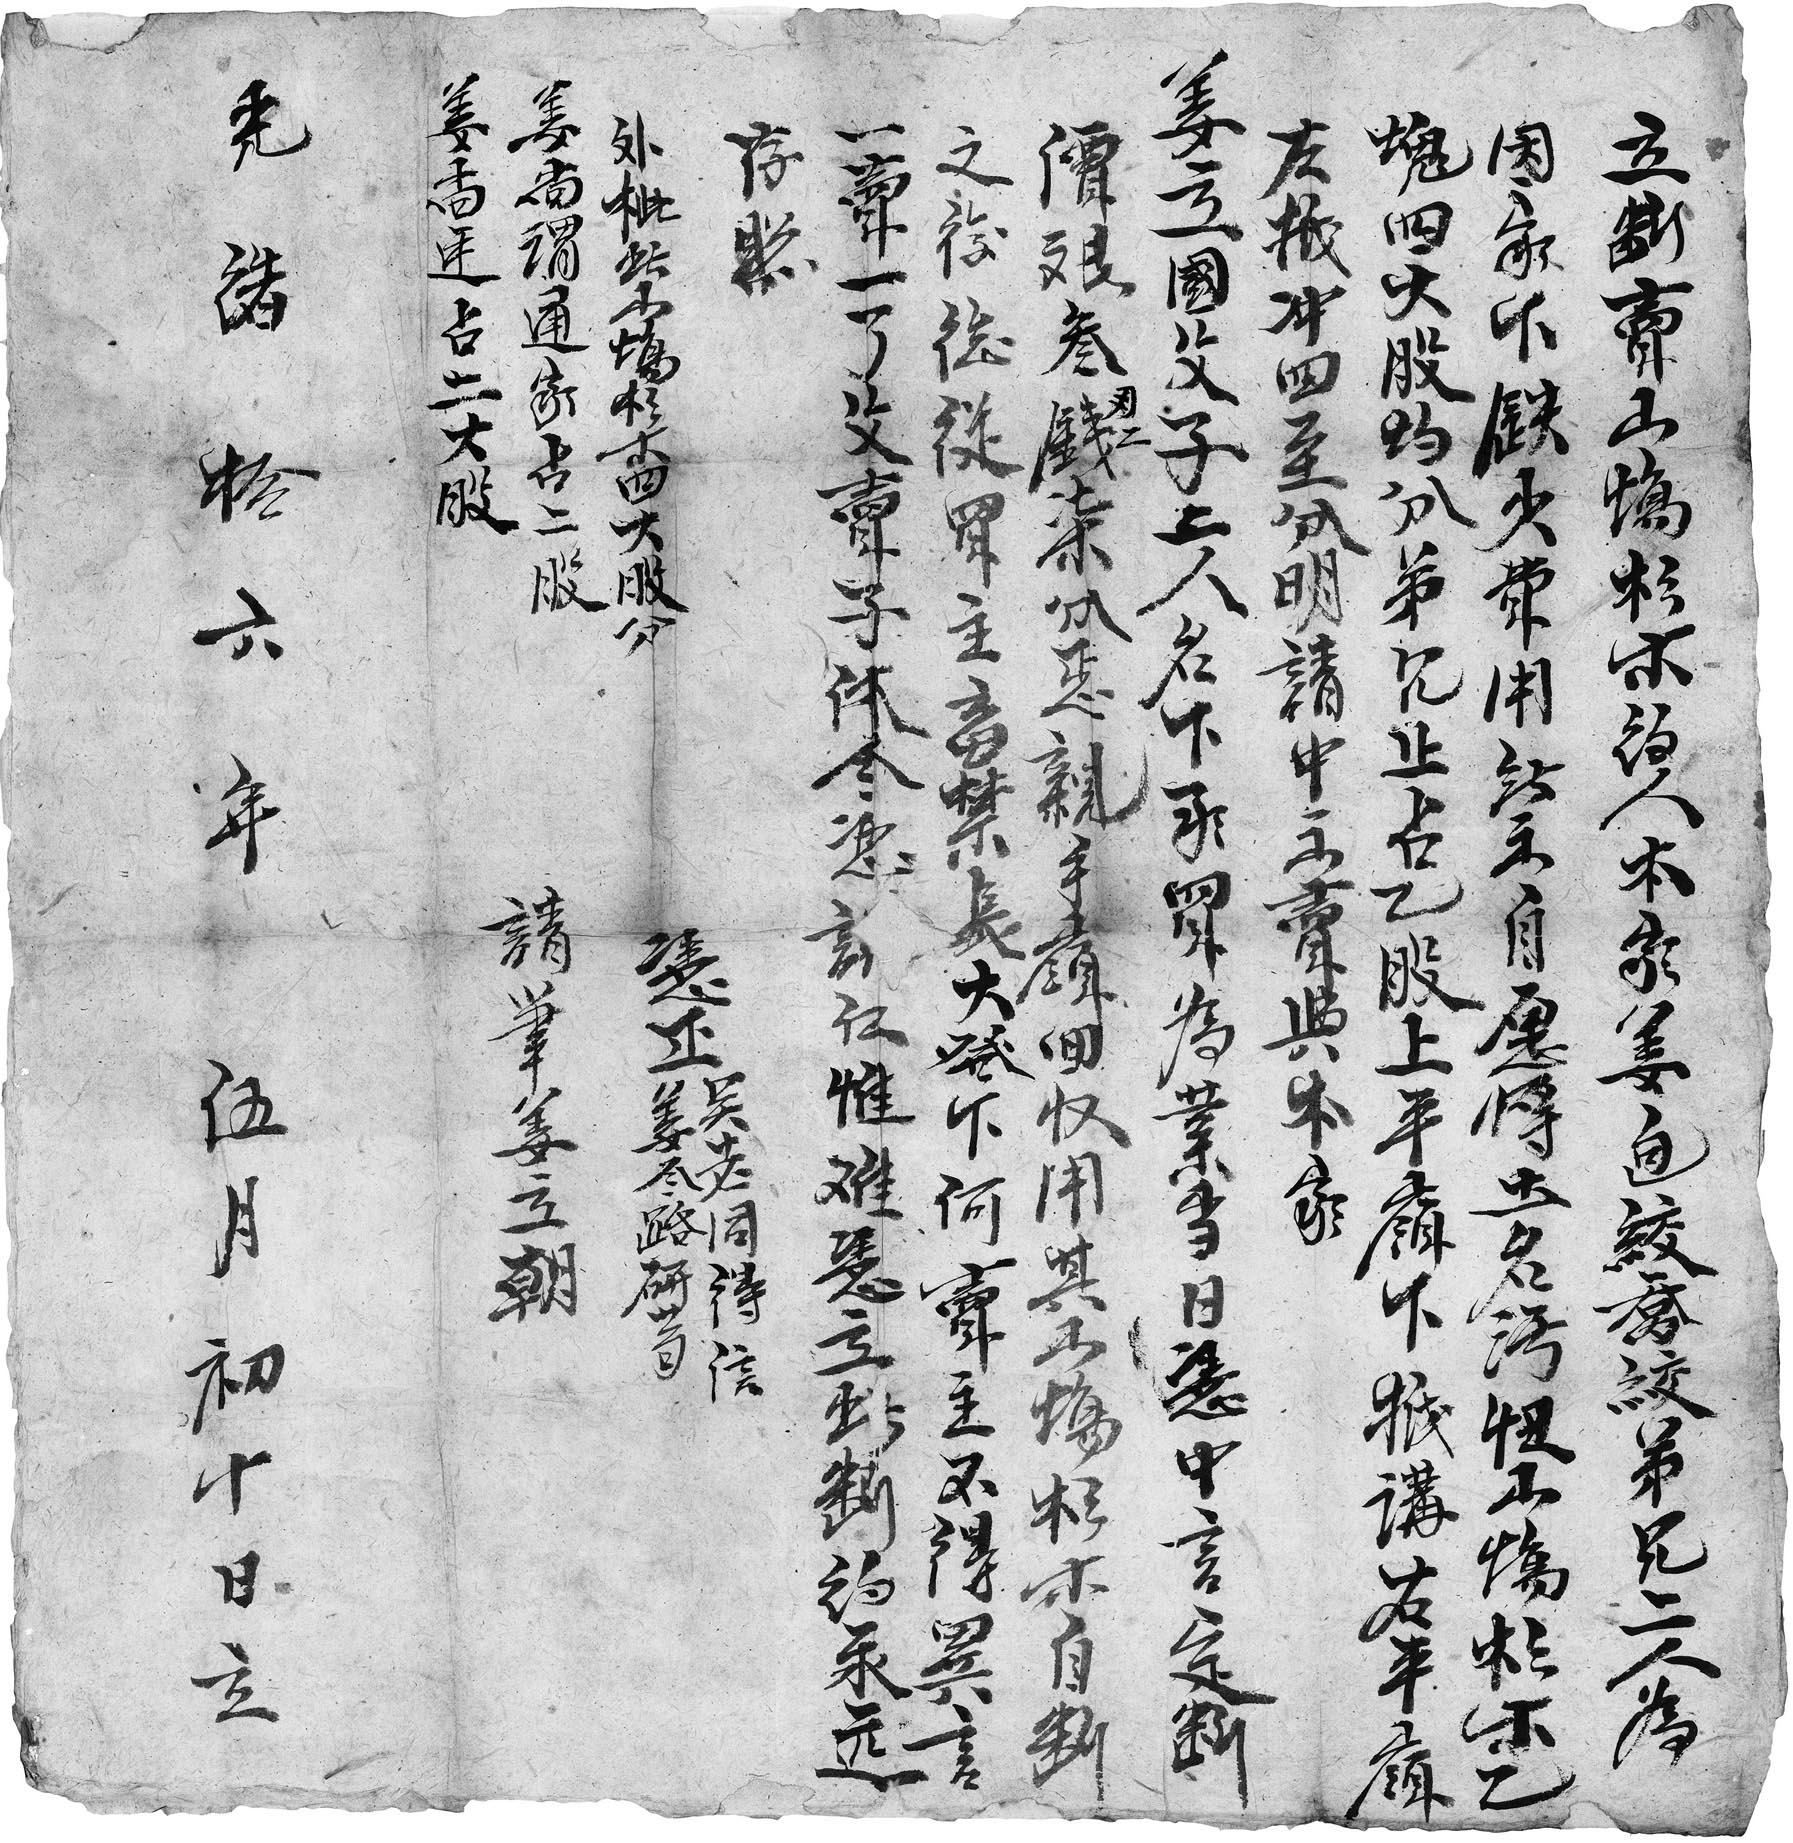 立斷賣山塲杉木約人本家姜迴絞喬絞弟兄二人為
因家下缺少費用無處自愿將土名污忸山塲杉木乙
塊四大股均分弟兄止占乙股上平嶺下抵溝右平嶺
左抵冲四至分明請中出賣與本家
姜立國父子二人名下承買為業当日憑中言定斷
價艮叁錢柒分正親手領回收用其山塲杉木自斷
之後任從買主畜禁長大發下何賣主不得異言
一賣一了父賣子休今恐言仁惟难憑立此斷約承远
存照
外批此山塲杉木四大股分
姜尚謂通家占二股
姜喬連占二大股
憑正
吴老同得信
姜尽路研苟
請筆姜立朝
光緒拾六年伍月初十日立